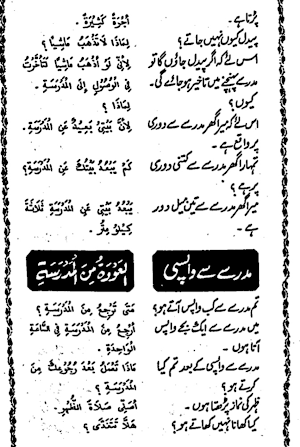 پڑتا ہے۔ أُجْرَةً كَثِيْرَةً .
پیدل کیوں نہیں جاتے؟ لِمَاذَا لَا تَذْهَبُ مَاشِيًا ؟
اس لئے کہ اگر پیدل جاؤں گا تو لِأَنِّيْ لَوْ أَذْهَبُ مَاشِيًا تَأَخَّرْتُ
مدرسے پہنچنے میں تاخیر ہو جائے گی۔ فِي الْوُصُوْلِ إِلَى الْمَدْرَسَةِ .
کیوں؟ لِمَاذَا ؟
اس لئے کہ میرا گھر مدرسے سے دوری لِأَنَّ بَيْتِيْ بَعِيْدٌ عَنِ الْمَدْرَسَةِ .
پر واقع ہے۔
تمہارا گھر مدرسے سے کتنی دوری كَمْ يَبْعُدُ بَيْتُكَ عَنِ الْمَدْرَسَةِ؟
پر ہے؟
میرا گھر مدرسے سے تین میل دور يَبْعُدُ بَيْتِيْ عَنِ الْمَدْرَسَةِ ثَلَاثَةَ
ہے۔ كِيْلُوْ مِتْرٍ .
مدرسے سے واپسی العَوْدَةُ مِنَ الْمَدْرَسَةِ
تم مدرسے سے کب واپس آتے ہو؟ مَتٰى تَرْجِعُ مِنَ الْمَدْرَسَةِ ؟
میں مدرسے سے ایک بجے واپس أَرْجِعُ مِنَ الْمَدْرَسَةِ فِي السَّاعَةِ
آتا ہوں۔ الْوَاحِدَةِ .
مدرسے سے واپسی کے بعد تم کیا مَاذَا تَعْمَلُ بَعْدَ رُجُوْعِكَ مِنَ
کرتے ہو؟ الْمَدْرَسَةِ ؟
ظہر کی نماز پڑھتا ہوں۔ أُصَلِّيْ صَلَاةَ الظُّهْرِ .
کیا کھانا نہیں کھاتے ہو؟ هَلَّا تَتَغَدّٰى ؟